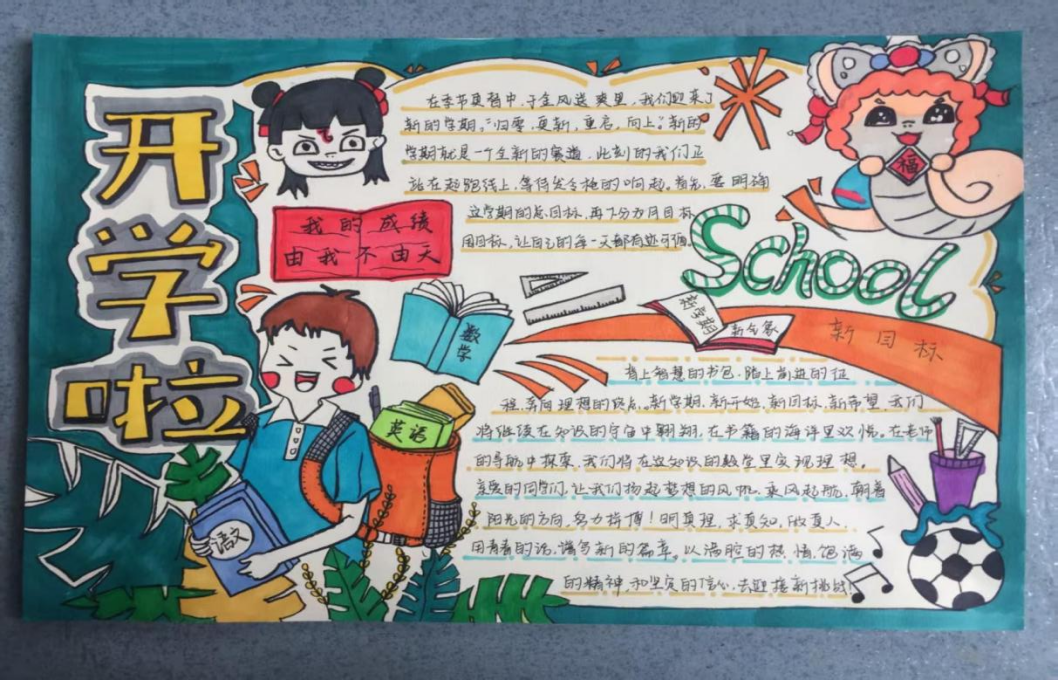 开学啦
在季节更替中，于金风送爽里，我们迎来了
新的学期，“归零，更新，重启，向上。”新的
学期就是一个全新的赛道，此刻的我们正
站在起跑线上，等待发令枪的响起。首先，要明确
这学期的总目标，再下分为月目标
周目标，让自己的每一天都有迹可循。
我的成绩
由我不由天
福
School
数学
新学期
新气象
新目标
背上智慧的书包，踏上前进的征
程，奔向理想的终点，新学期，新开始，新目标，新希望，我们
将继续在知识的宇宙中翱翔，在书籍的海洋里欢悦，在老师
的导航中探索，我们将在这知识的殿堂里实现理想。
亲爱的同学们，让我们扬起梦想的风帆，乘风起航，朝着
阳光的方向，努力拼搏！明真理，求真知，做真人，
用青春的活，谱写新的篇章。以满腔的热情，饱满
的精神，和坚定的信心，去迎接新挑战！
英语
语文